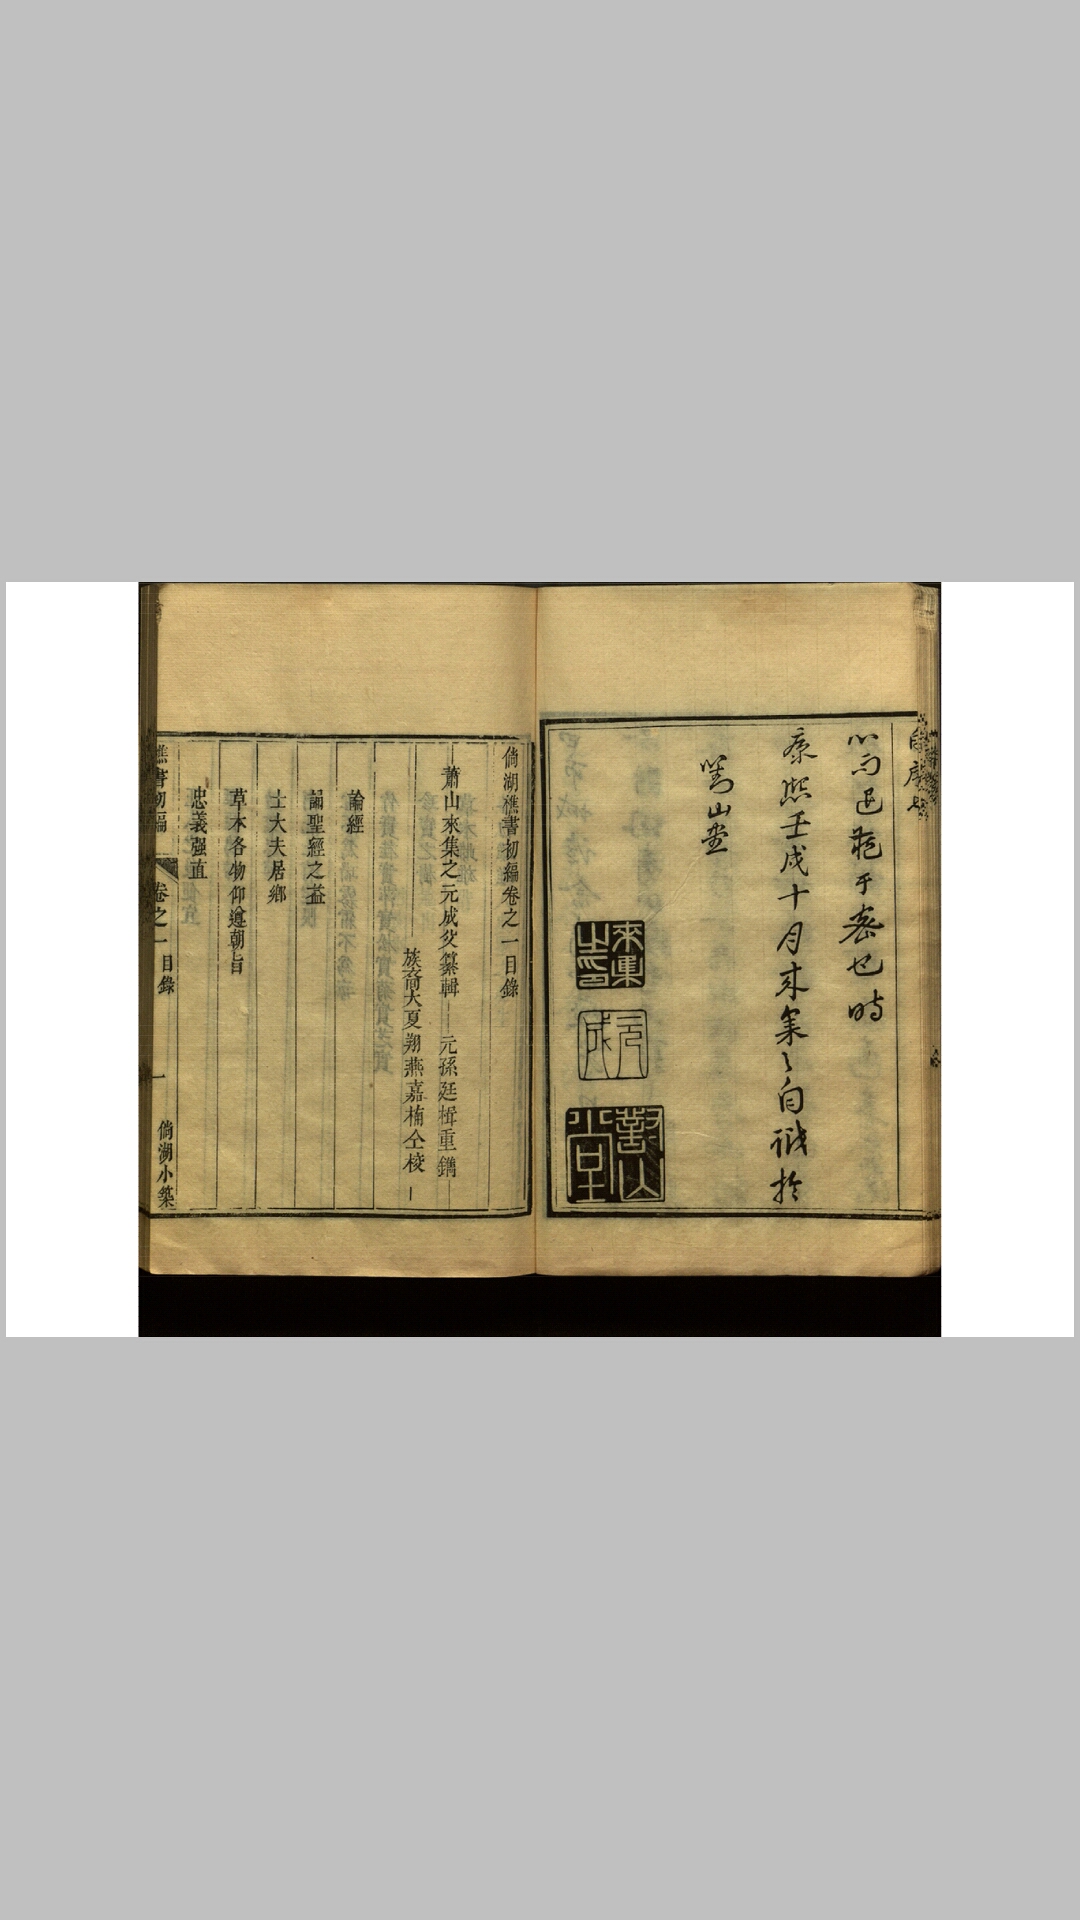 心而已範于壑也時
康熙壬戌十月来集之自識於
對山堂
來集之印
元成
對山堂
倘湖樵書初編卷之一目錄
蕭山來集之元成父纂輯 元孫廷楫重鐫
族裔大夏翔燕嘉楠仝校
論經
誦聖經之益
士大夫居鄉
草木各物仰遵朝旨
忠義强直
樵書初編 卷之一目錄 一 倘湖小築